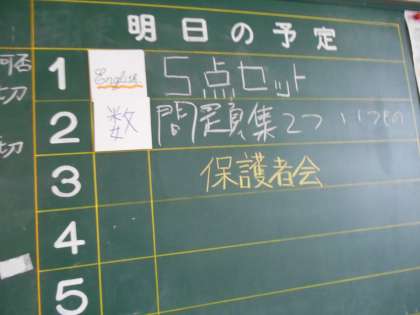 明日の予定
1 English 5点セット
2 数 問題集2つ いつもの
3 保護者会
4
5
切
切